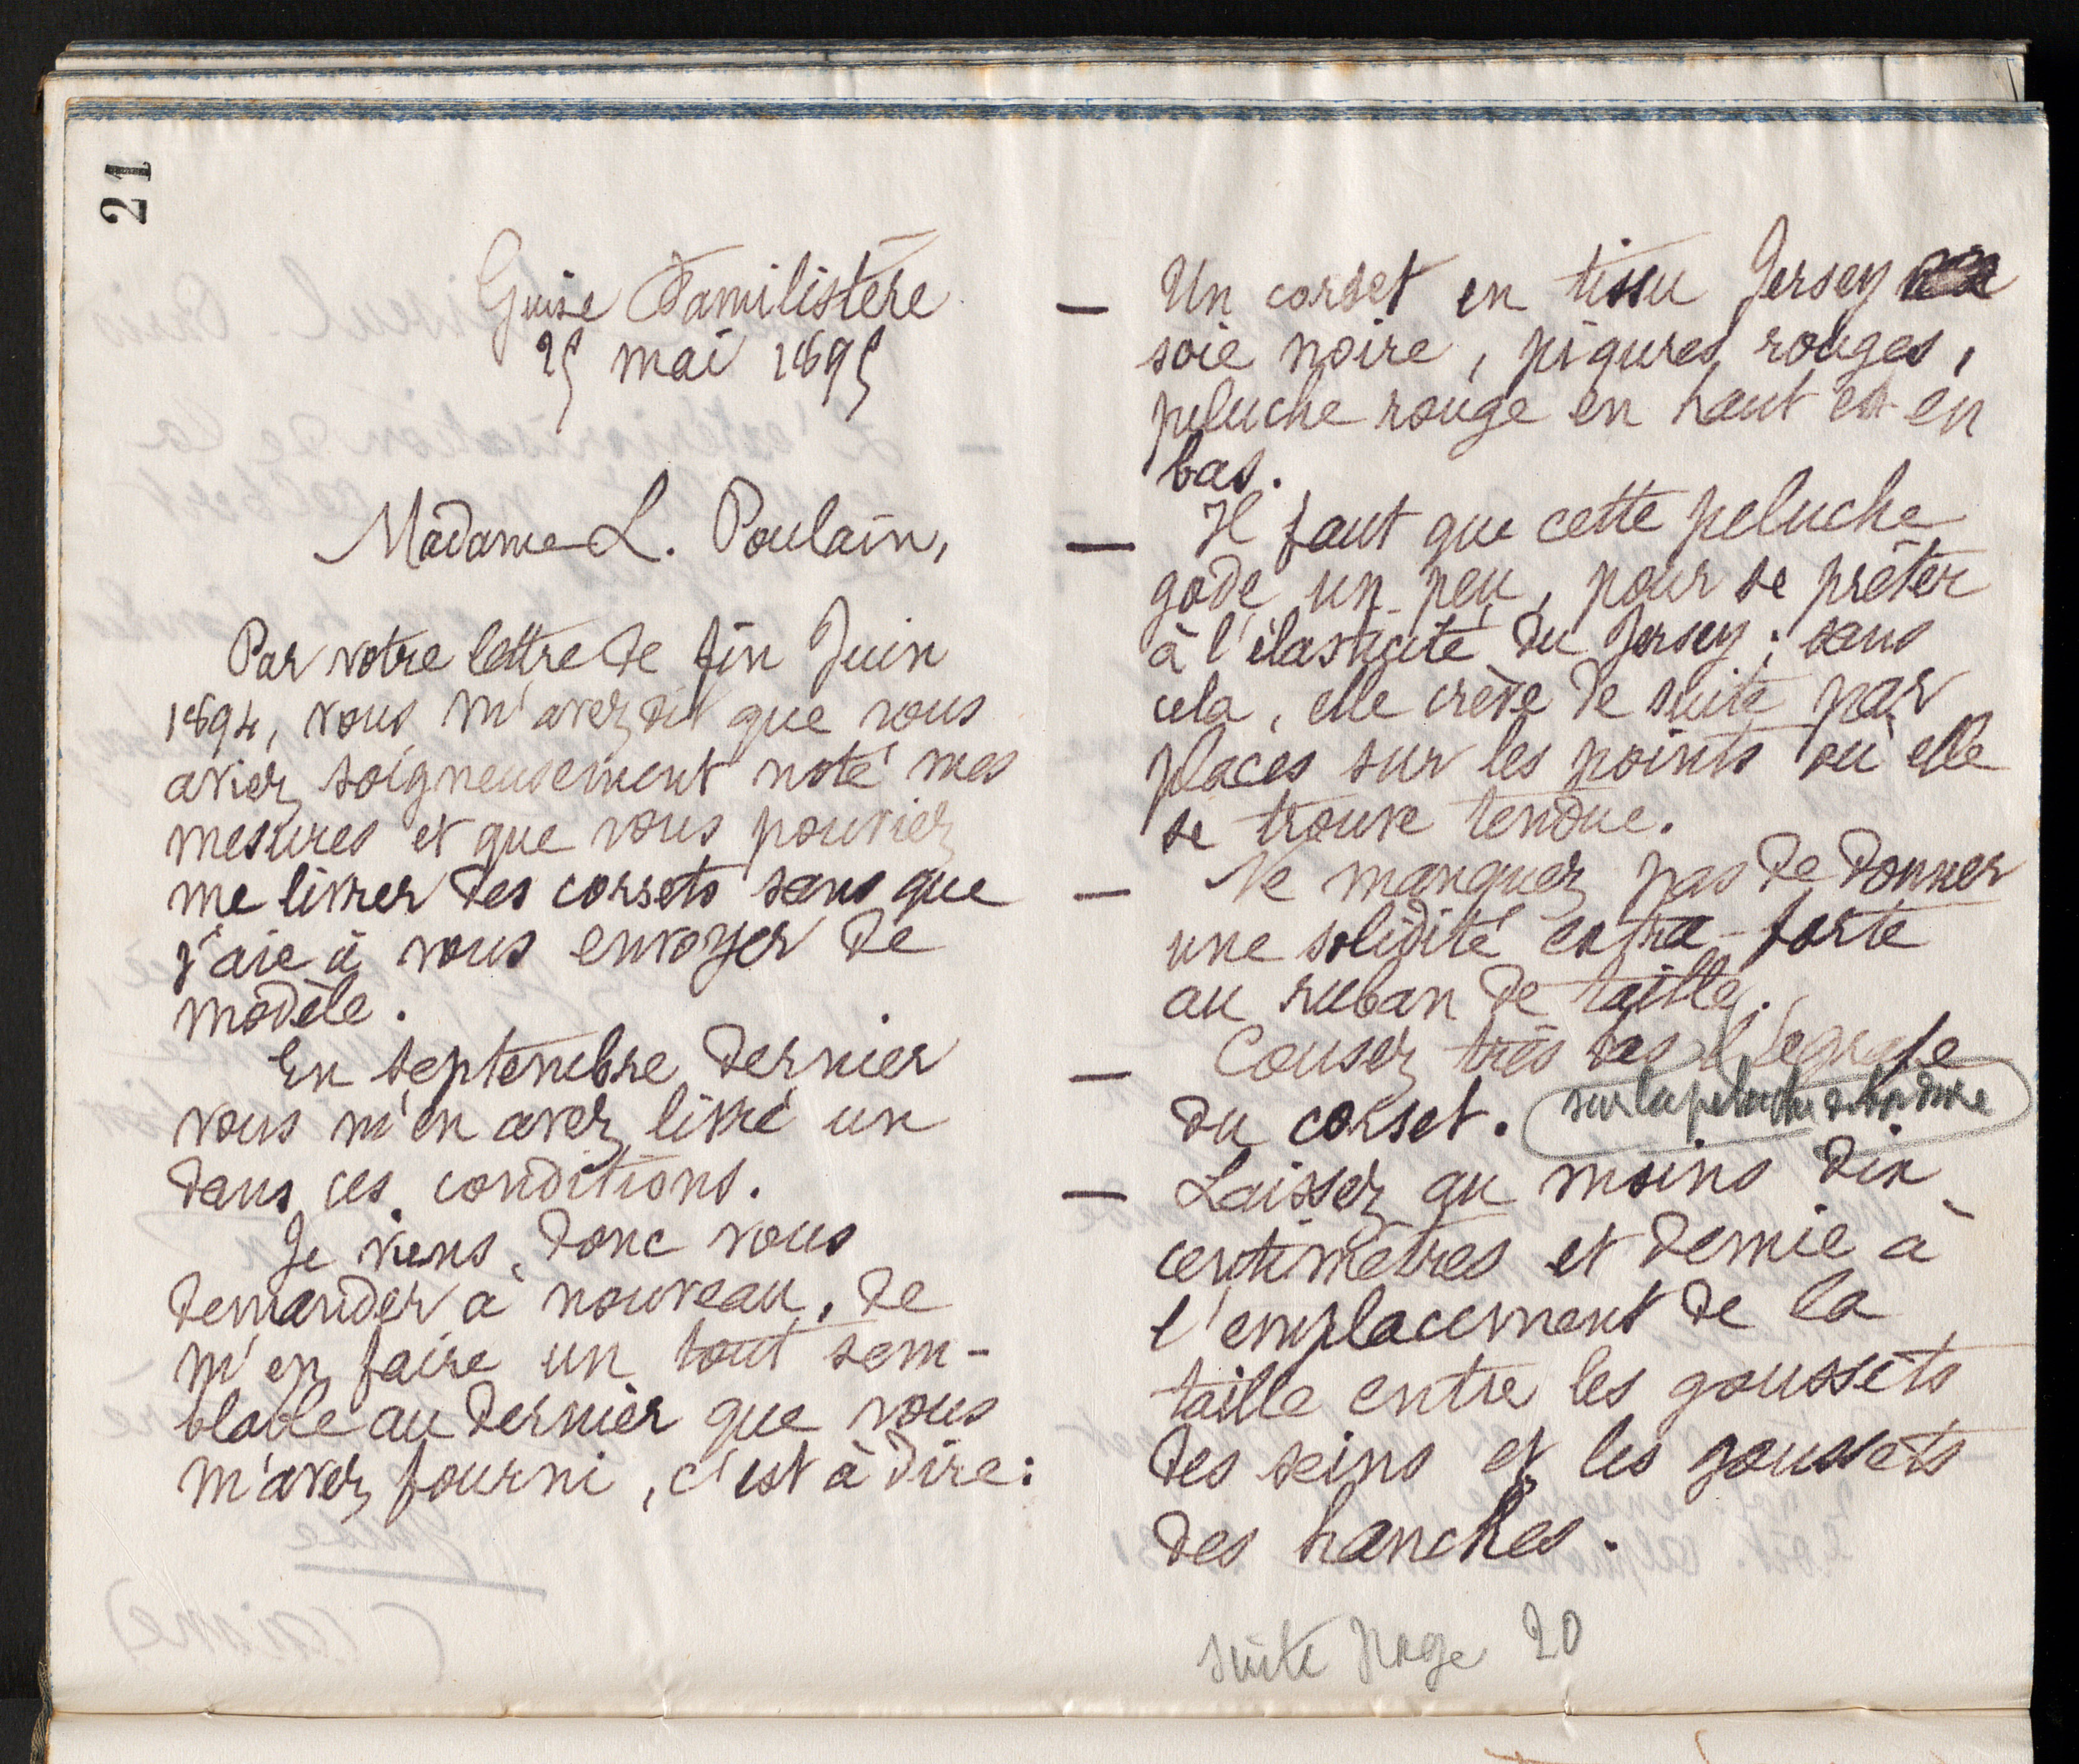 21
Guise Familistère
25 mai 1895
Madame L. Poulain,
Par votre lettre de fin Juin
1894, vous m'avez dit que vous
aviez soigneusement noté mes
mesures et que vous pouviez
me livrer des corsets sans que
j'aie à vous envoyer de
modèle.
En septembre dernier
vous m'en avez livré un
dans ces conditions.
Je viens, donc vous
demander à nouveau, de
m'en faire un tout sem-
blable au dernier que vous
m'avez fourni, c'est à dire:
— Un corset en tissu Jersey
soie noire, piqures rouges,
peluche rouge en haut et en
bas.
— Il faut que cette peluche
gode un peu, pour se prêter
à l'élasticité du Jersey; sans
cela, elle crève de suite par
places sur les points où elle
se trouve tendue.
— Ne manquez pas de donner
une solidité extra-forte
au ruban de taille.
— Cousez très bas l'agrafe
du corset. sur la peluche
— Laissez au moins dix
centimètres et demie à
l'emplacement de la
taille entre les goussets
des seins et les goussets
des hanches.
suite page 20